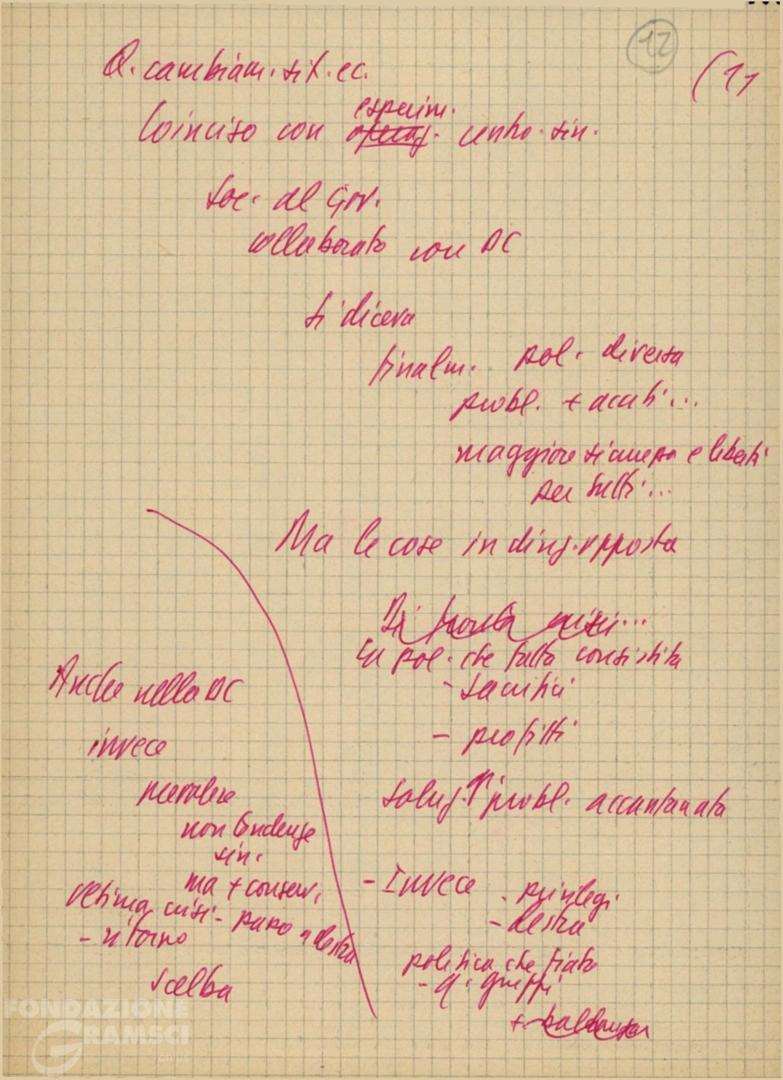 12
(11
Q. cambiam. sit. ec.
esperim.
Coinciso con centro. sin.
Soc. al Gov.
collaborato con DC
Si diceva
finalm. pol. diversa
probl. + acuti...
maggiore sicurezza e libertà
per tutti...
Ma le cose in direz. opposta
Di fronte crisi...
La pol. che fatto consistita
- Sacrifici
- profitti
Soluz. probl. accantonata
- Invece - privilegi
- destra
politica che fiato
- q. gruppi
+
Anche nella DC
invece
prevalere
non tendenze
sin.
ma + conserv.
Ultima crisi - passo a destra
- ritorno
Scelba
FONDAZIONE
GRAMSCI